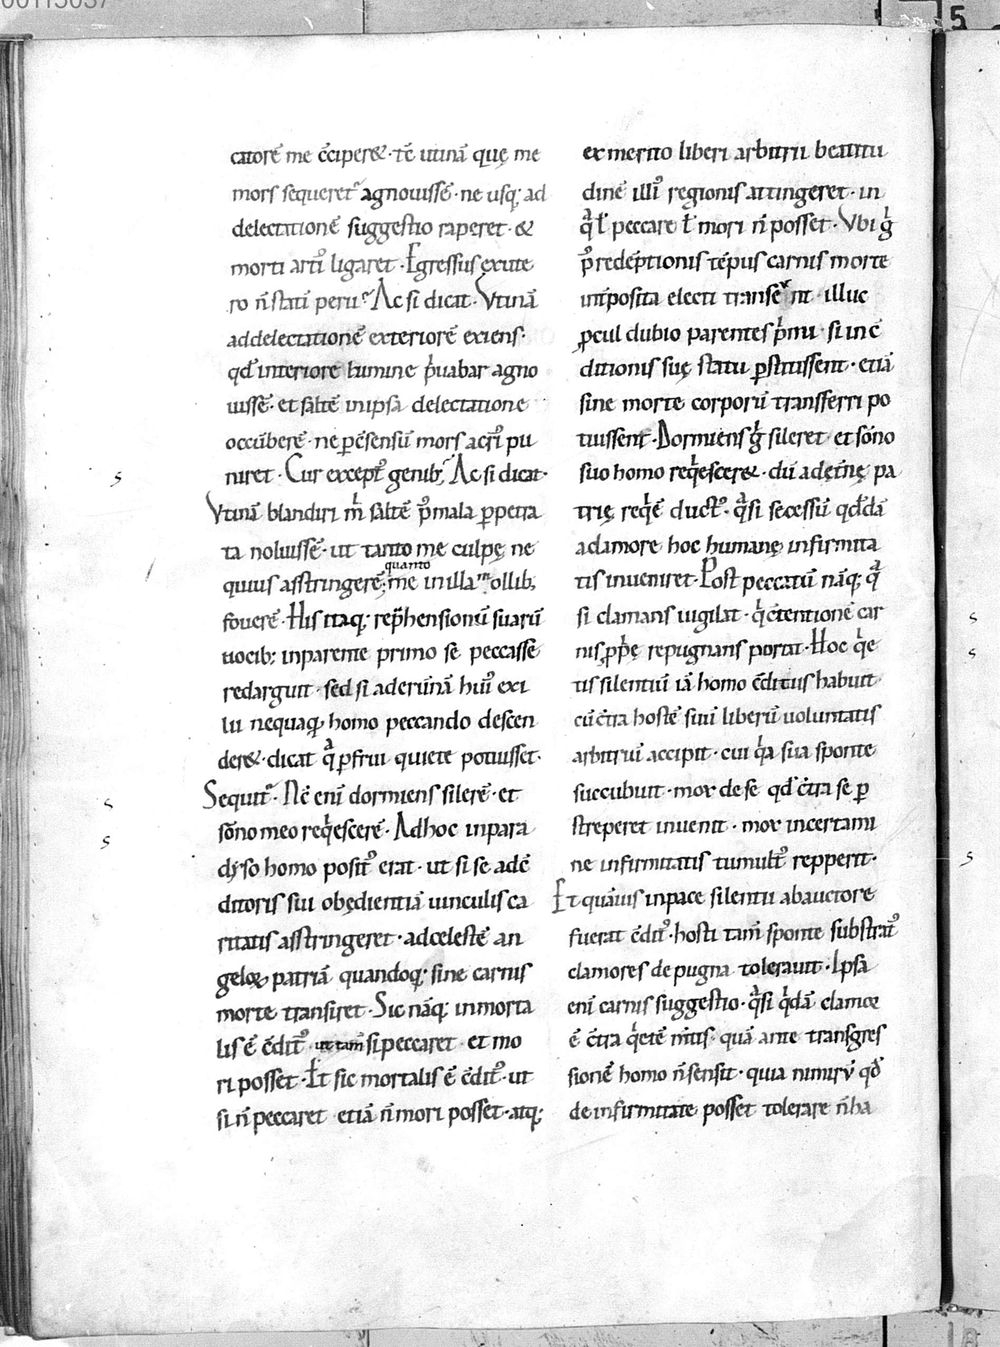 00115037
5
catorē me c̄ciperet · tē utinā quę me
mors sequeret᷑ agnouissē · ne usq; ad
delectationē suggestio raperet · &
morti artꝰ ligaret · Egressus ex ute
ro n̄ statī periı̄ · Ac si dicat · Vtinā
ad delectationē exteriorē exiens ·
qđ interiore lumine p̍uabar agno
uissē · et saltē in ipsa delectatione
occūberē · ne p̱ c̄sensū mors acriꝰ pu
niret · Cur exceptꝰ genib; · Ac si dicat ·
Vtinā blandiri m̍ saltē p̱ mala p̱petra
ta noluissē · ut tanto me culpę ne
quanto
quius asstringerē; me in illa mollib;
fouerē · His itaq; rep̄hensionū suarū
uocib; in parente primo se peccasse
redarguit · sed si ad erūnā huiꝰ exi
lii nequaq̱ homo peccando descen
deret · dicat qͣ p̱frui quiete potuisset ·
Sequit᷑ · Nc̄ enī dormiens silerē · et
sōno meo req̍escerē · Ad hoc in para
dyso homo positꝰ erat · ut si se ad c̄
ditoris sui obędientiā uinculis ca
ritatis asstringeret · ad celestē an
geloꝝ patriā quandoq; sine carnis
morte transiret · Sic nāq; inmorta
lis ē c̄ditꝰ ut tam̄ si peccaret · et mo
ri posset · Et sic mortalis ē c̄ditꝰ · ut
si n̄ peccaret etiā n̄ mori posset · atq;
ex merito liberi arbitrii beatitu
dinē illiꝰ regionis attingeret · in
qͣ ł peccare ł mori n̄ posset · Vbi g̍
p̱ redēptionis tēpus carnis morte
int̄posita electi transeunt · illuc
p̱cul dubio parentes p̍mi · si in c̄
ditionis suę statu p̱stitissent · etiā
sine morte corporū transferri po
tuissent · Dormiens g̍ sileret · et sōno
suo homo req̍esceret · dū ad ęt̄nę pa
trię req̍ē ductꝰ · qͣsi secessū qđdā
ad amore hoc humanę infirmita
tis inueniret · Post peccatū nāq; qͣ
si clamans uigilat · q̍ c̄tentionē car
nis p̱pę repugnans portat · Hoc q̍e
tis silentiū iā homo c̄ditus habuit ·
cū c̄tra hostē suū liberū uoluntatis
arbitriū accipit · cui qͣa sua sponte
succubuit · mox de se qđ c̄tra se p̱
streperet inuenit · mox in certami
ne infirmitatis tumultꝰ repperit ·
Et quāuis in pace silentii ab auctore
fuerat c̄ditꝰ · hosti tam̄ sponte substratꝰ
clamores de pugna tolerauit · Ipsa
enī carnis suggestio · qͣsi q̍dā clamor
ē c̄tra q̍etē m̄tis · quā ante transgres
sionē homo n̄ sensit · quia nimirū qđ
de infirmitate posset tolerare n̄ ha